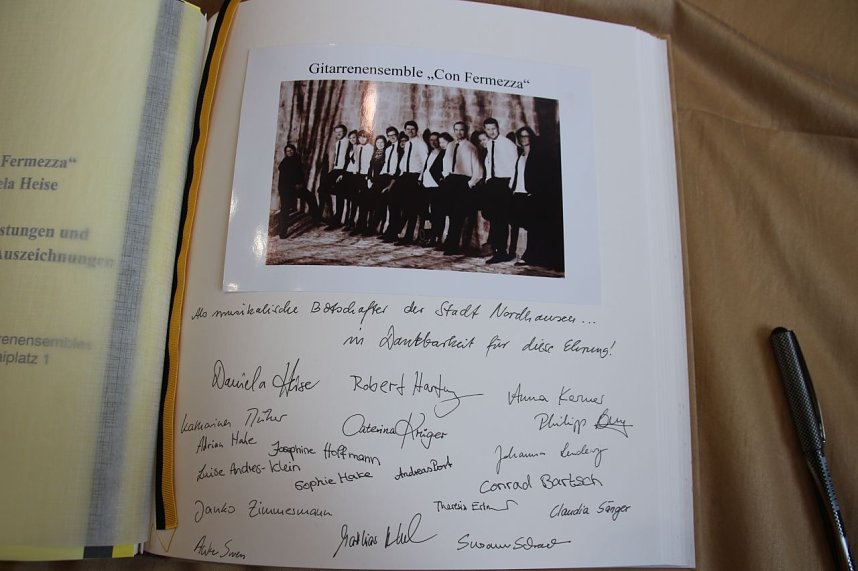 Fermezza“
ela Heise
stungen und
Auszeichnungen
renensembles
niplatz 1
Gitarrenensemble „Con Fermezza“
Als musikalische Botschafter der Stadt Nordhausen...
in Dankbarkeit für diese Ehrung!
Daniela Heise Robert Anna Kerner
Katharina Caterina Krüger Philipp
Adrian Hake Josephine Hoffmann Johanna
Luise Andres-Klein Sophie Hake Andreas Conrad Bartsch
Janko Zimmermann Theresa Claudia Sänger
Mathias Susann